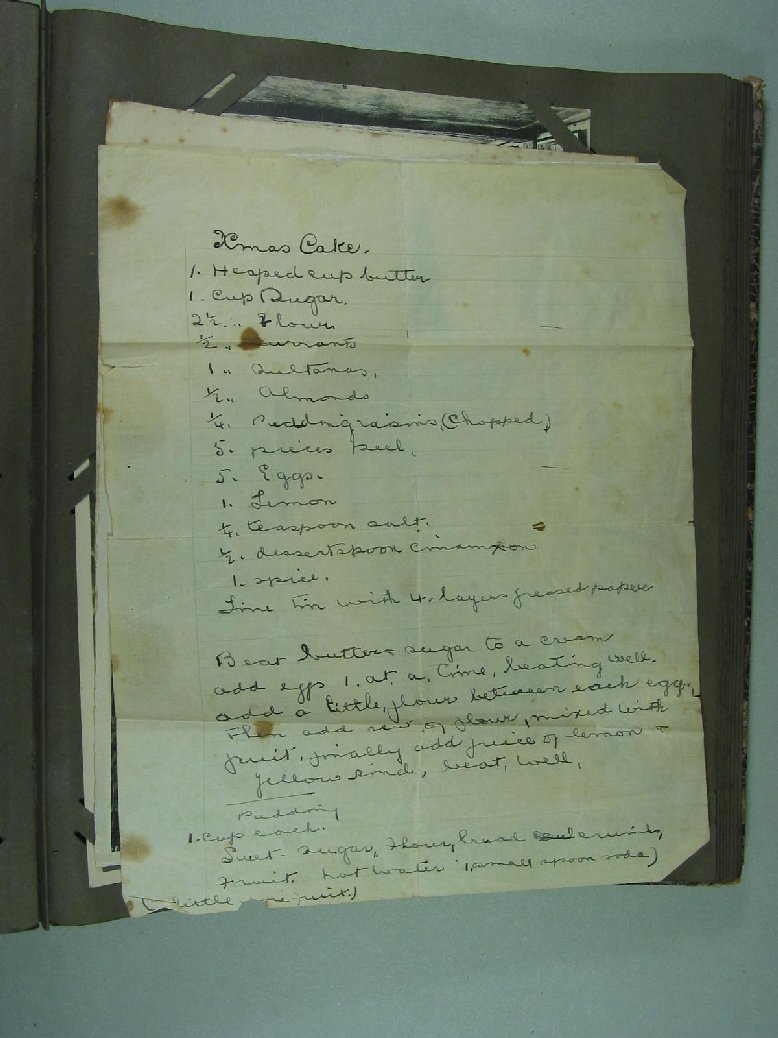 Xmas Cake.
1. Heaped cup butter
1. cup Sugar.
2½. " Flour.
½ " Currants
1 " Sultanas,
½ " Almonds
¼. Pudding raisins, (Chopped)
5. pieces peel.
5. Eggs.
1. Lemon
¼. teaspoon salt.
½. dessertspoon cinamon
1. spice.
Line tin with 4. layers greased paper
Beat butter & sugar to a cream
add eggs 1. at. a. time, beating well.
add a little, flour between each egg,
then add rest of flour, mixed with
fruit, finally add juice of lemon &
yellow rind, beat, well,
Pudding
1. cup each.
Suet. Sugar, Flour, bread crumbs,
Fruit. hot water (1, small spoon soda)
(a little more fruit.)